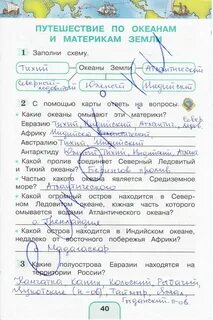 ПУТЕШЕСТВИЕ ПО ОКЕАНАМ
И МАТЕРИКАМ ЗЕМЛИ
1 Заполни схему.
Тихий Океаны Земли Атлантический
Северный Ледовитый Южный Индийский
2 С помощью карты ответь на вопросы.
• Какие океаны омывают эти материки?
Евразию Тихий, Индийский, Атлант., Север. Ледов.
Африку Индийский Атлантический
Австралию Тихий, Индийский
Антарктиду Тихий, Индийский, Атлан.
• Какой пролив соединяет Северный Ледовитый
и Тихий океаны? Берингов пролив
• Частью какого океана является Средиземное
море? Атлантического
• Какой огромный остров находится в Север-
ном Ледовитом океане, южная часть которого
омывается водами Атлантического океана?
о. Гренландия
• Какой остров находится в Индийском океане,
недалеко от восточного побережья Африки?
о. Мадагаскар
3 Какие полуострова Евразии находятся на
территории России?
Камчатка, Канин, Кольский, Рыбачий,
Чукотский (п-ов), Таймыр, Ямал,
Гыданский п-ов
40